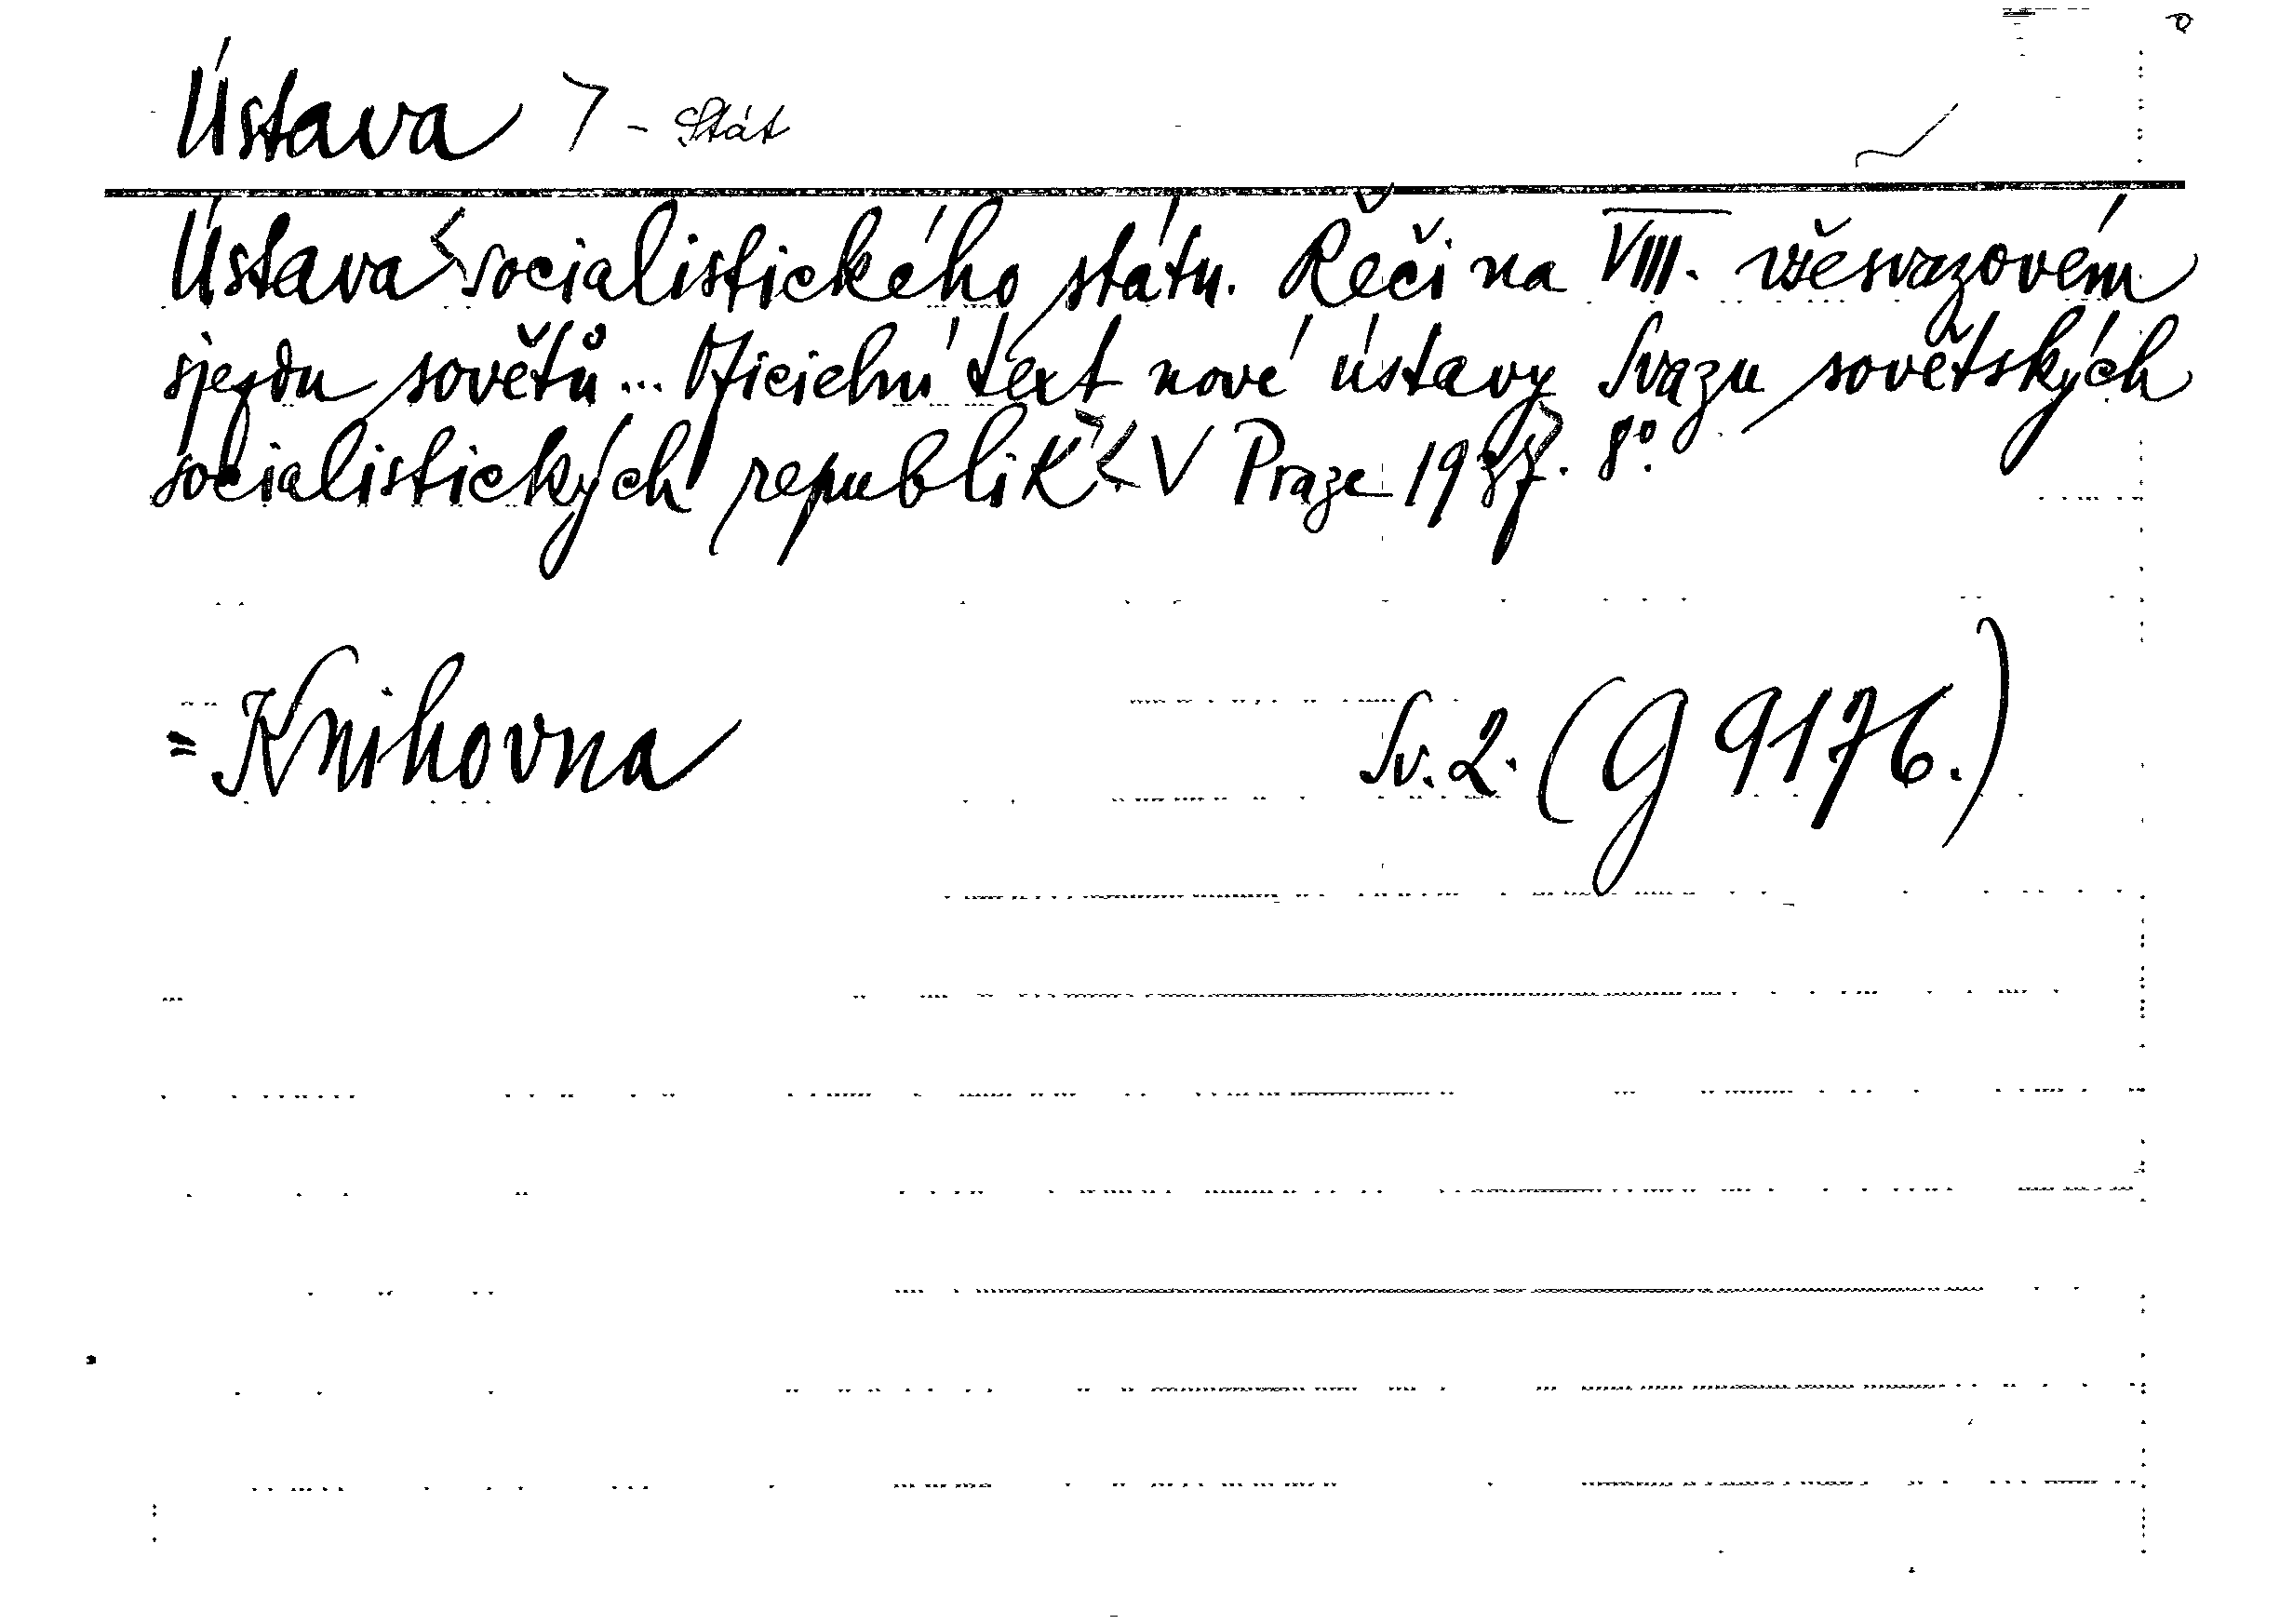 Ústava 7 - Stát
Ústava socialistického státu. Řeči na VIII. všesvazovém
sjezdu sovětů... Oficielní text nové ústavy Svazu sovětských
socialistických republik V Praze 1937. 8°.
= Knihovna Sv. 2. (G 9176.)